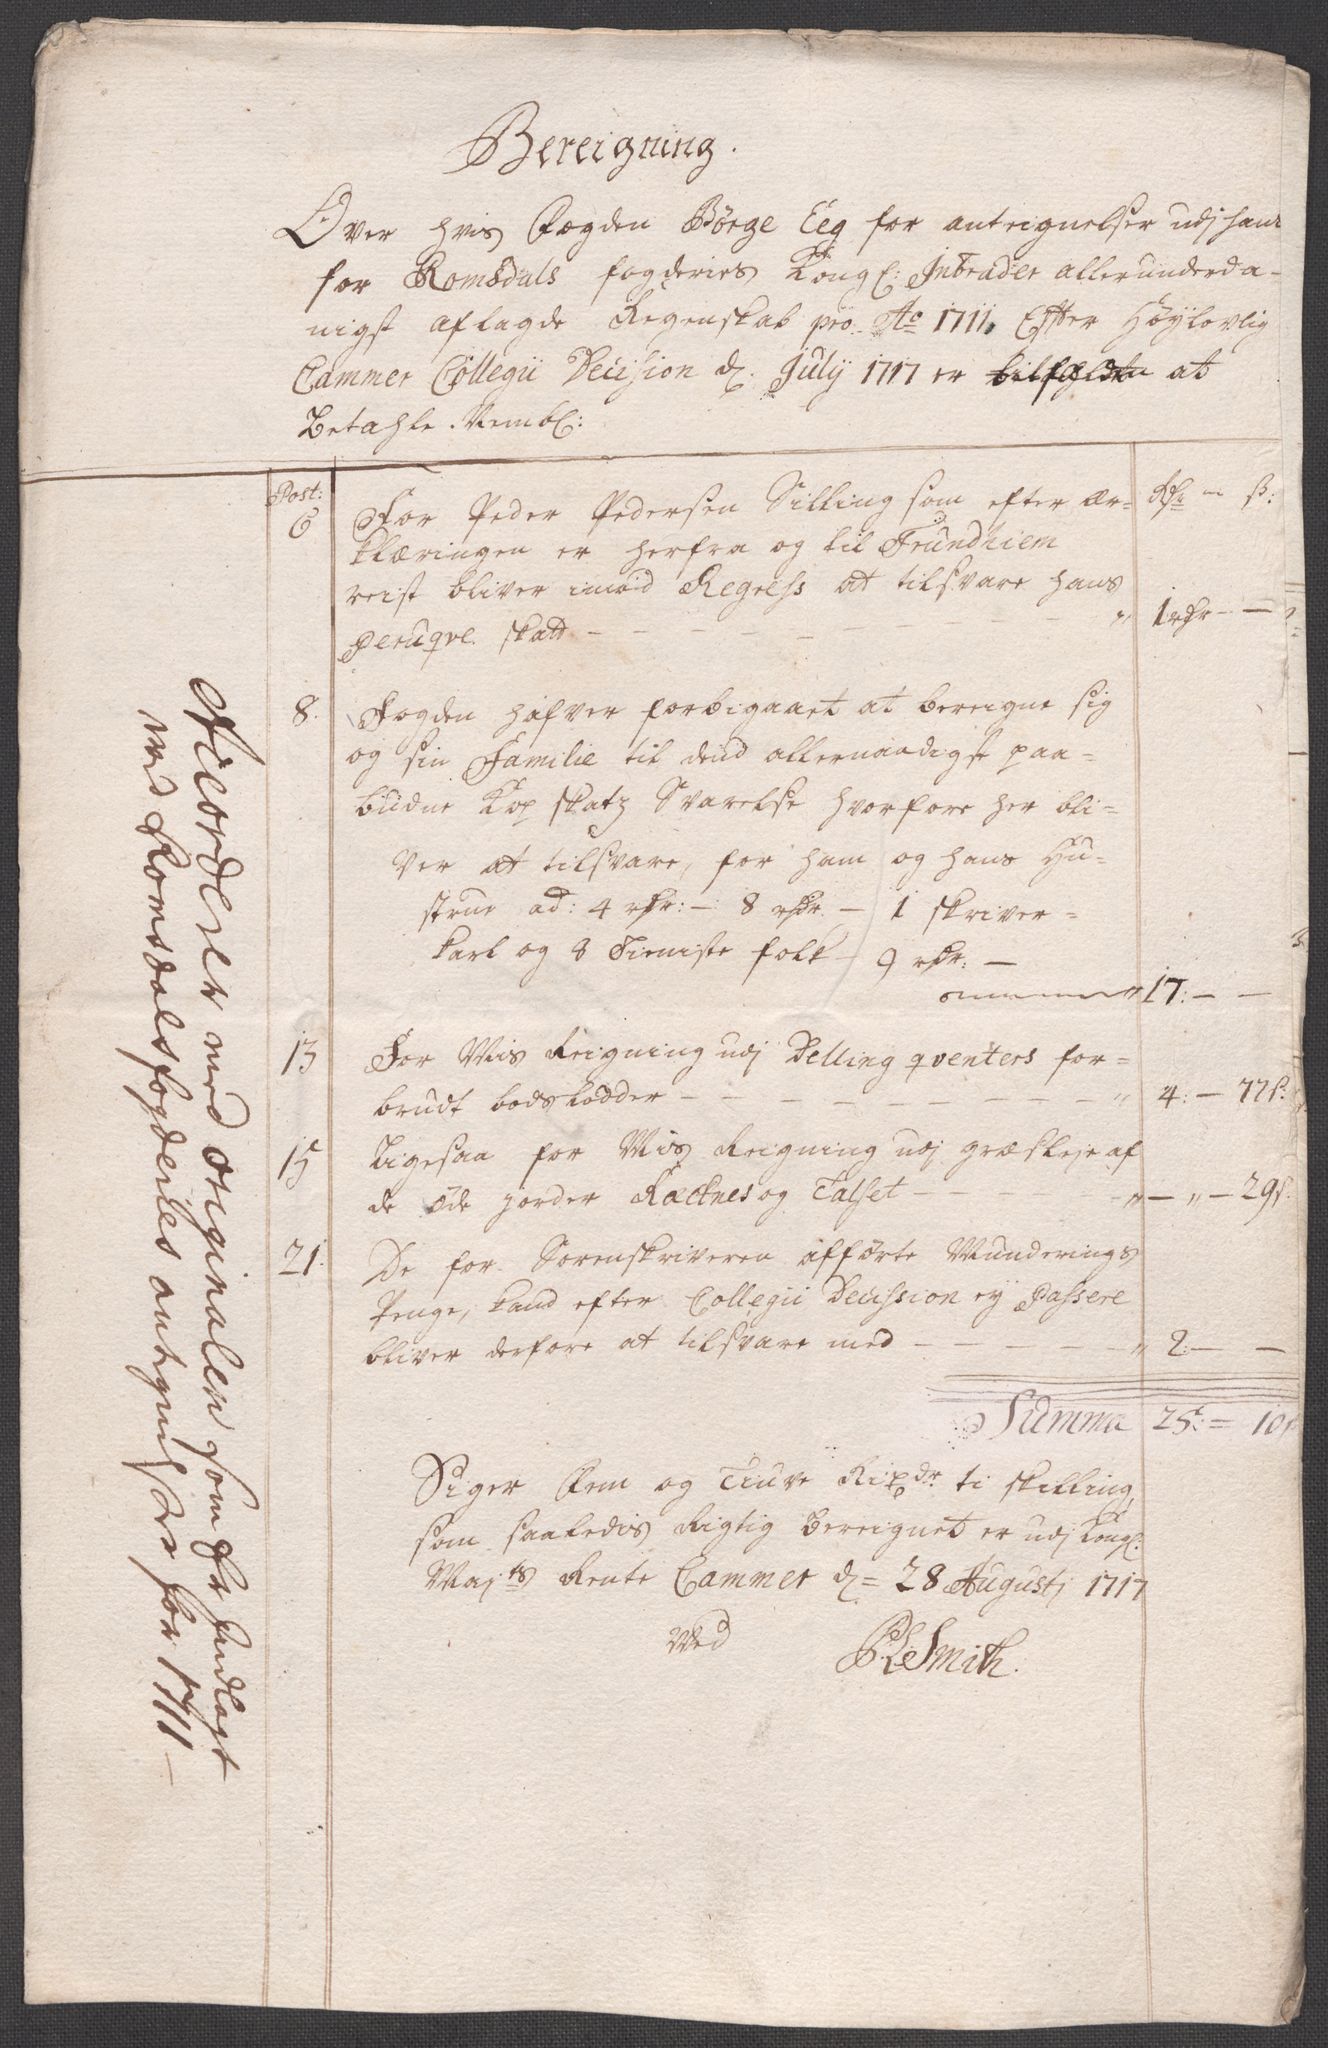 Bereigning.
Over hvis Fogden Börge Eeg for anteignelser udj hans
for Romsdals fogderies Kongl: Intrader allerunderda-
nigst aflagde Regenskab pro Ao 1711, Effter Höylovlig
Cammer Collegii Decision d. July 1717 er at
Betahle. Nembl:
Post: Rdr ß:
6 For Peder Pedersen Silling som efter ær-
klæringen er herfra og til Trundhiem
reist bliver imod Regress at tilsvare hans
Peruqve skatt - - - - - - - " 1 rdr - -
8. Fogden hafver forbigaaet at bereigne sig
og sin Familie til dend allernaadigst paa-
budne Kop skatz Svarelse hvorfore her bli-
ver at tilsvare, for ham og hans Hu-
strue ad: 4 rdr: - 8 rdr. - 1 skriver-
karl og 8 Tieniste folk - 9 rdr: -
" 17: - -
13 For Mis Reigning udj Delling qventers for-
brudt bodslodder - - - - - - - " 4: - 77 s:
15 Ligesaa for Mis Reigning udj græsleje af
de öde gorder Ræctnes og Talset - - - - " - " - 29 s:
21. De for Sorenskriveren afförte Munderings
Penge, kand efter Collegii Decission ey Passere
bliver derfore at tilsvare med - - - - - " 2: - -
Summa 25: = 10 s
Siger Fem og Tiuve Rixdr. ti skilling,
som saaledis Rigtig Bereignet er udj Kongl:
Majts Rente Cammer d= 28 Augustj 1717
Ved PLSmith.
Accorderer med originalen som er indlagt
ved Romsdals fogderies antegnelser for 1711 -